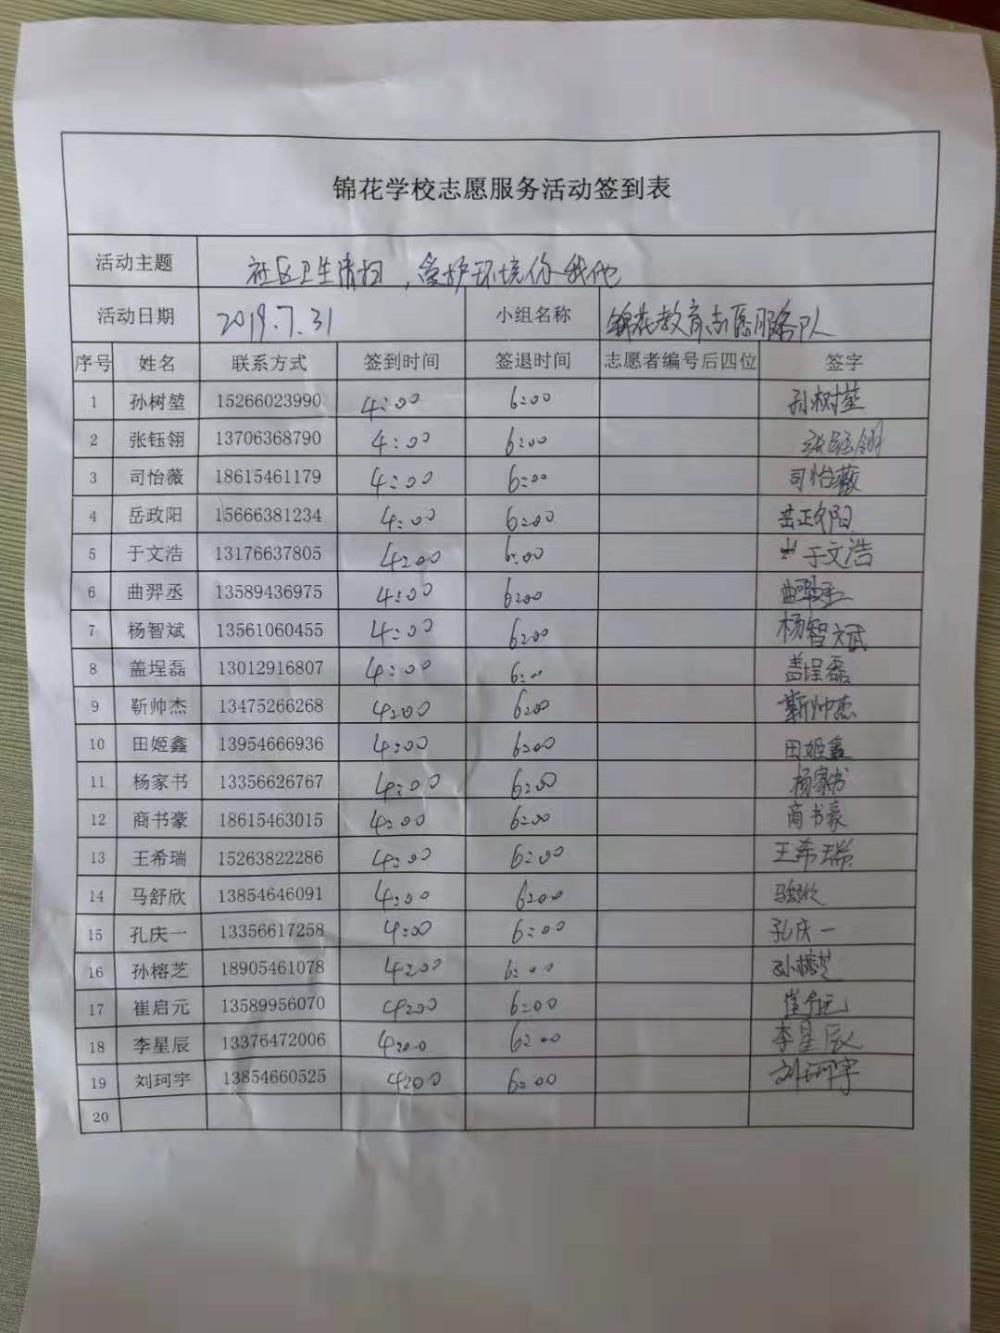 锦花学校志愿服务活动签到表
活动主题 社区卫生清扫，爱护环境你我他
活动日期 2019.7.31 小组名称 锦花教育志愿服务队
序号 姓名 联系方式 签到时间 签退时间 志愿者编号后四位 签字
1 孙树堃 15266023990 4:00 6:00 孙树堃
2 张钰翎 13706368790 4:00 6:00 张钰翎
3 司怡薇 18615461179 4:00 6:00 司怡薇
4 岳政阳 15666381234 4:00 6:00 岳政阳
5 于文浩 13176637805 4:00 6:00 于文浩
6 曲羿丞 13589436975 4:00 6:00 曲羿丞
7 杨智斌 13561060455 4:00 6:00 杨智斌
8 盖埕磊 13012916807 4:00 6:00 盖埕磊
9 靳帅杰 13475266268 4:00 6:00 靳帅杰
10 田姬鑫 13954666936 4:00 6:00 田姬鑫
11 杨家书 13356626767 4:00 6:00 杨家书
12 商书豪 18615463015 4:00 6:00 商书豪
13 王希瑞 15263822286 4:00 6:00 王希瑞
14 马舒欣 13854646091 4:00 6:00 马舒欣
15 孔庆一 13356617258 4:00 6:00 孔庆一
16 孙榕芝 18905461078 4:00 6:00 孙榕芝
17 崔启元 13589956070 4:00 6:00 崔启元
18 李星辰 13376472006 4:00 6:00 李星辰
19 刘珂宇 13854660525 4:00 6:00 刘珂宇
20